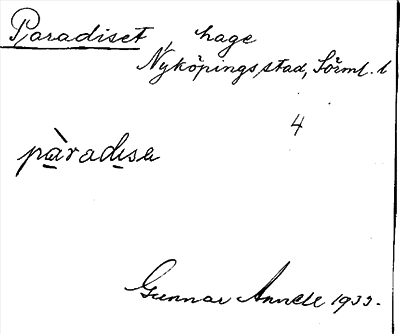 Paradiset, hage
Nyköpings stad, Sörml. l
4
pàradisa
Gunnar Annell 1933.